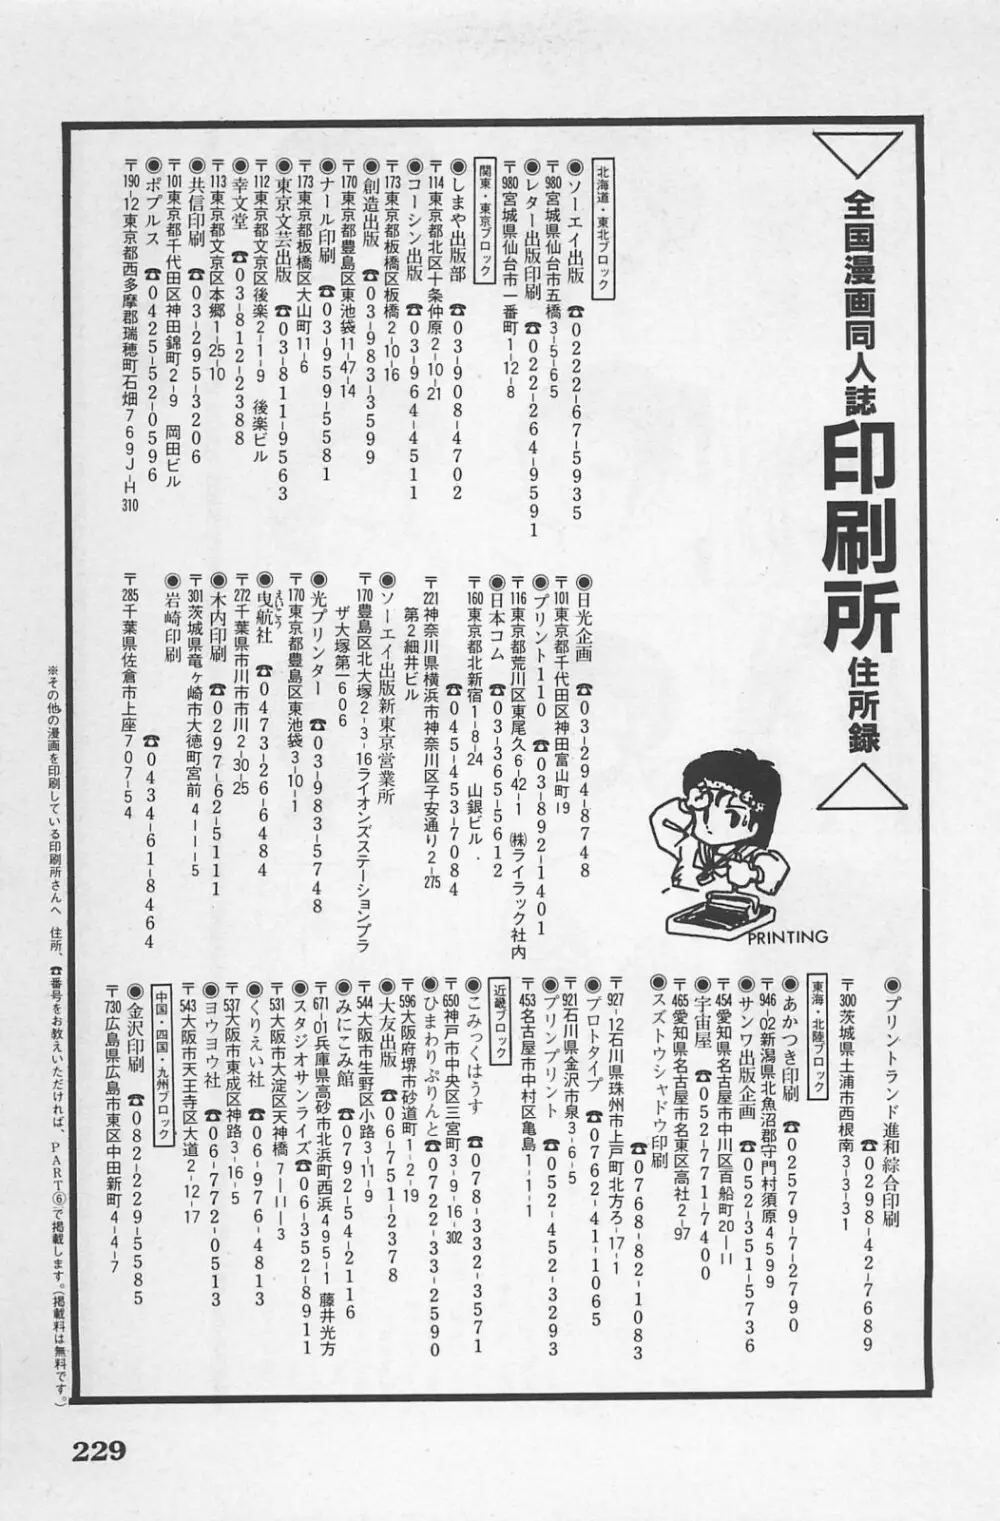 全国漫画同人誌印刷所住所録
PRINTING
北海道・東北ブロック
◉ソーエイ出版 ☎0222-67-5935
〒980宮城県仙台市五橋3-5-65
◉レター出版印刷 ☎022-264-9591
〒980宮城県仙台市一番町1-12-8
関東・東京ブロック
◉しまや出版部 ☎03-908-4702
〒114東京都北区十条仲原2-10-21
◉コーシン出版 ☎03-964-4511
〒173東京都板橋区板橋2-10-16
◉創造出版 ☎03-983-3599
〒170東京都豊島区東池袋11-47-14
◉ナール印刷 ☎03-959-5581
〒173東京都板橋区大山町11-6
◉東京文芸出版 ☎03-811-9563
〒112東京都文京区後楽2-1-9 後楽ビル
◉幸文堂 ☎03-812-2388
〒113東京都文京区本郷1-25-10
◉共信印刷 ☎03-295-3206
〒101東京都千代田区神田錦町2-9 岡田ビル
◉ポプルス ☎0425-52-0596
〒190-12東京都西多摩郡瑞穂町石畑769J-H310
◉日光企画 ☎03-294-8748
〒101東京都千代田区神田富山町19
◉プリント110 ☎03-892-1401
〒116東京都荒川区東尾久6-42-1 ㈱ライラック社内
◉日本コム ☎03-365-5612
〒160東京都北新宿1-8-24 山銀ビル
☎045-453-7084
〒221神奈川県横浜市神奈川区子安通り2-275
第2細井ビル
◉ソーエイ出版新東京営業所
〒170豊島区北大塚2-3-16ライオンズステーションプラ
ザ大塚第一606
◉光プリンター ☎03-983-5748
〒170東京都豊島区東池袋3-10-1
えいこう
◉曳航社 ☎0473-26-6484
〒272千葉県市川市市川2-30-25
◉木内印刷 ☎0297-62-5111
〒301茨城県竜ヶ崎市大徳町宮前4-1-5
◉岩崎印刷
☎0434-61-8464
〒285千葉県佐倉市上座707-54
◉プリントランド進和綜合印刷
☎0298-42-7689
〒300茨城県土浦市西根南3-3-31
東海・北陸ブロック
◉あかつき印刷 ☎02579-7-2790
〒946-02新潟県北魚沼郡守門村須原4599
◉サンワ出版企画 ☎052-351-5736
〒454愛知県名古屋市中川区百船町20-11
◉宇宙屋 ☎052-771-7400
〒465愛知県名古屋市名東区高社2-97
◉スズトウシャドウ印刷
☎0768-82-1083
〒927-12石川県珠州市上戸町北方ろ-17-1
◉プロトタイプ ☎0762-41-1065
〒921石川県金沢市泉3-6-5
◉プリンプリント ☎052-452-3293
〒453名古屋市中村区亀島1-1-1
近畿ブロック
◉こみっくはうす ☎078-332-3571
〒650神戸市中央区三宮町3-9-16-302
◉ひまわりぷりんと☎0722-33-2590
〒596大阪府堺市砂道町1-2-19
◉大友出版 ☎06-751-2378
〒544大阪市生野区小路3-11-9
◉みにこみ館 ☎0792-54-2116
〒671-01兵庫県高砂市北浜町西浜495-1 藤井光方
◉スタジオサンライズ☎06-352-8911
〒531大阪市大淀区天神橋7-11-3
◉くりえい社 ☎06-976-4813
〒537大阪市東成区神路3-16-5
◉ヨウヨウ社 ☎06-772-0513
〒543大阪市天王寺区大道2-12-17
中国・四国・九州ブロック
◉金沢印刷 ☎082-229-5585
〒730広島県広島市東区中田新町4-4-7
※その他の漫画を印刷している印刷所さんへ 住所、☎番号をお教えいただければ、PART⑥で掲載します。(掲載料は無料です。)
229